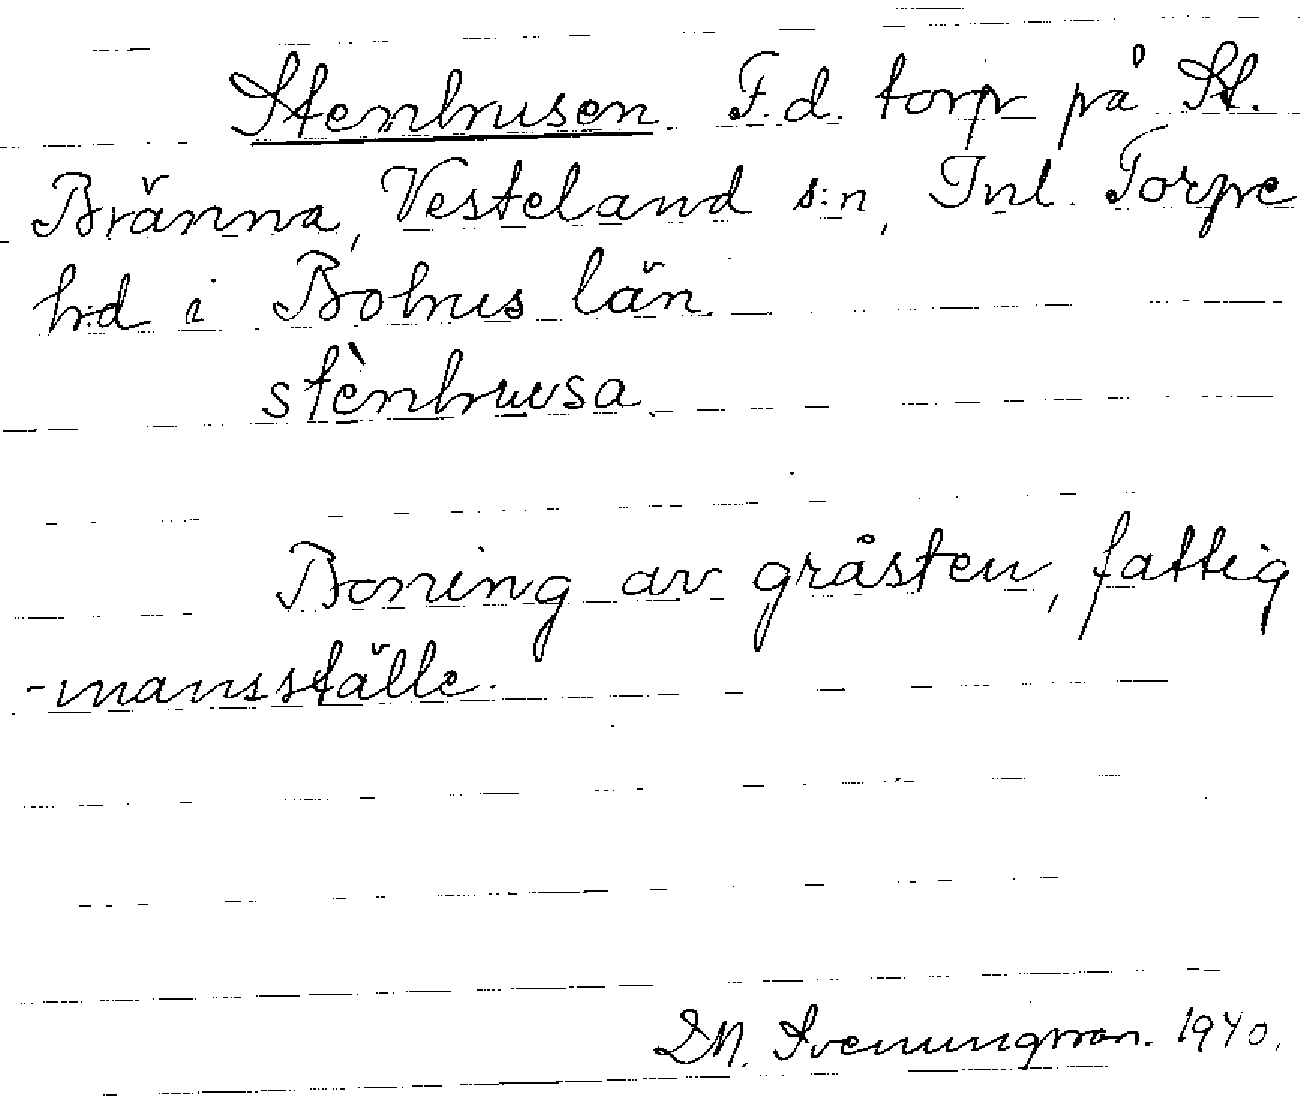 Stenhusen. F.d. torp på St.
Bränna, Vesteland s:n, Inl. Torpe
h:d i Bohus län.
stènhuusa.
Boning av gråsten, fattig
-mansställe.
D.N. Sveningsson. 1940.